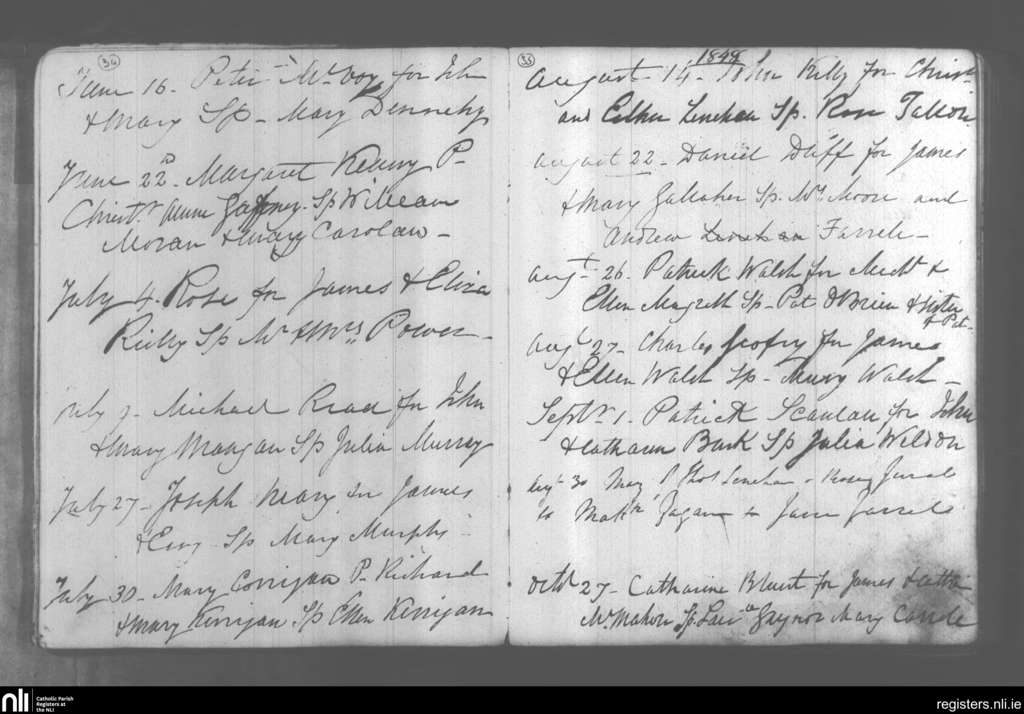 34
June 16. Peter McVoy for John
& Mary Sp - Mary Dennehy
June 22. Margaret Keary P-
Christr. Anne Gaffney. Sp William
Moran & Mary Carolan -
July 4. Rose for James & Eliza
Reilly Sp Mr & Mrs Power -
July 9 - Michael Read for John
& Mary Mangan Sp Julia Murray
July 27 - Joseph Keary for James
& Sp Mary Murphy
July 30 - Mary Corrigan P- Richard
& Mary Kerrigan Sp Ellen Kerrigan
35
1848
August 14 - John Kelly for Christr
and Esther Linehan Sp. Rose Tallon
August 22 - Daniel Duff for James
& Mary Gallaher Sp. Mrs Moore and
Andrew Farrell -
Augt 26. Patrick Walsh for Michl &
Ellen Magrath Sp - Pat OBrien & sister
of Pat -
Augt 27 - Charles Geofry for James
& Ellen Walsh Sp - Mary Walsh -
Septr 1. Patrick Scanlan for John
& Sp Julia Weldon
30 Mary P Thos Linehan
to to Jane
Octr 27 - Catharine for James &
McMahon Sp Gaynor Mary
nli
Catholic Parish
Registers at
the NLI
registers.nli.ie